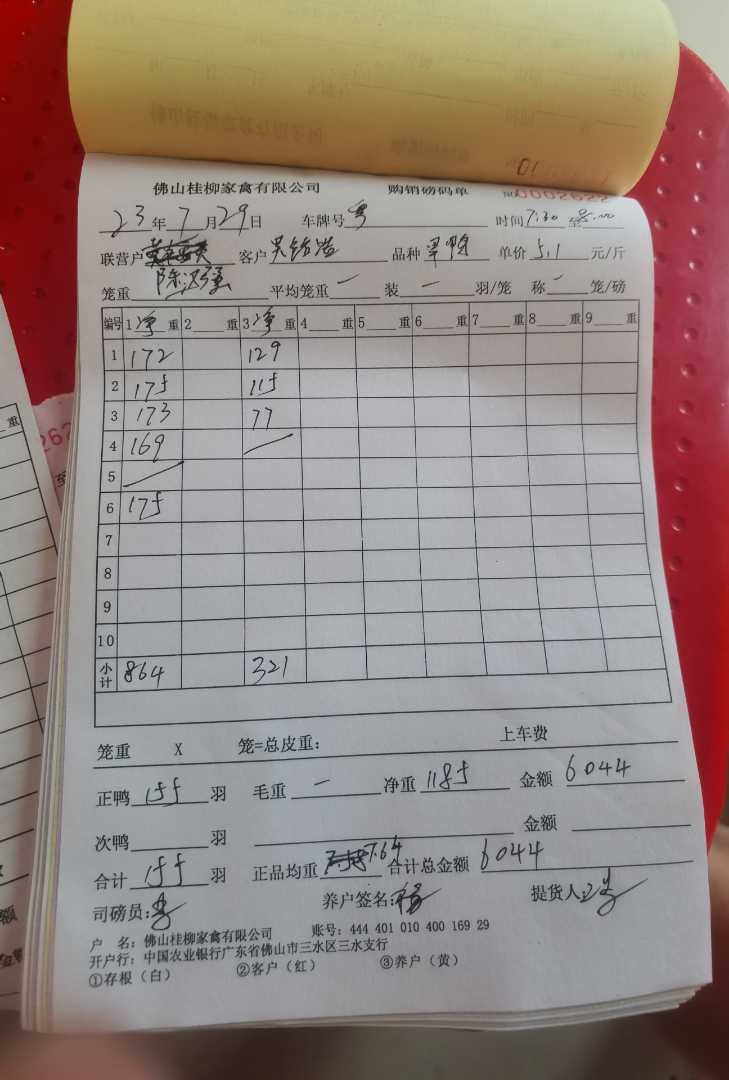 佛山桂柳家禽有限公司 购销磅码单 №0002622
23年7月29日 车牌号粤 时间7:30至8:00
联营户 客户 品种 单价5.1元/斤
笼重 平均笼重一装一羽/笼 称一笼/磅
编号 1净重 2重 3净重 4重 5重 6重 7重 8重 9重
1 172 129
2 175 115
3 173 77
4 169
5
6 175
7
8
9
10
小计 864 321
笼重 X 笼=总皮重: 上车费
正鸭155羽 毛重一 净重1185 金额6044
次鸭羽 金额
合计155羽 正品均重7.64 合计总金额6044
司磅员: 养户签名: 提货人
户 名: 佛山桂柳家禽有限公司 账号: 444 401 010 400 169 29
开户行: 中国农业银行广东省佛山市三水区三水支行
①存根(白) ②客户(红) ③养户(黄)